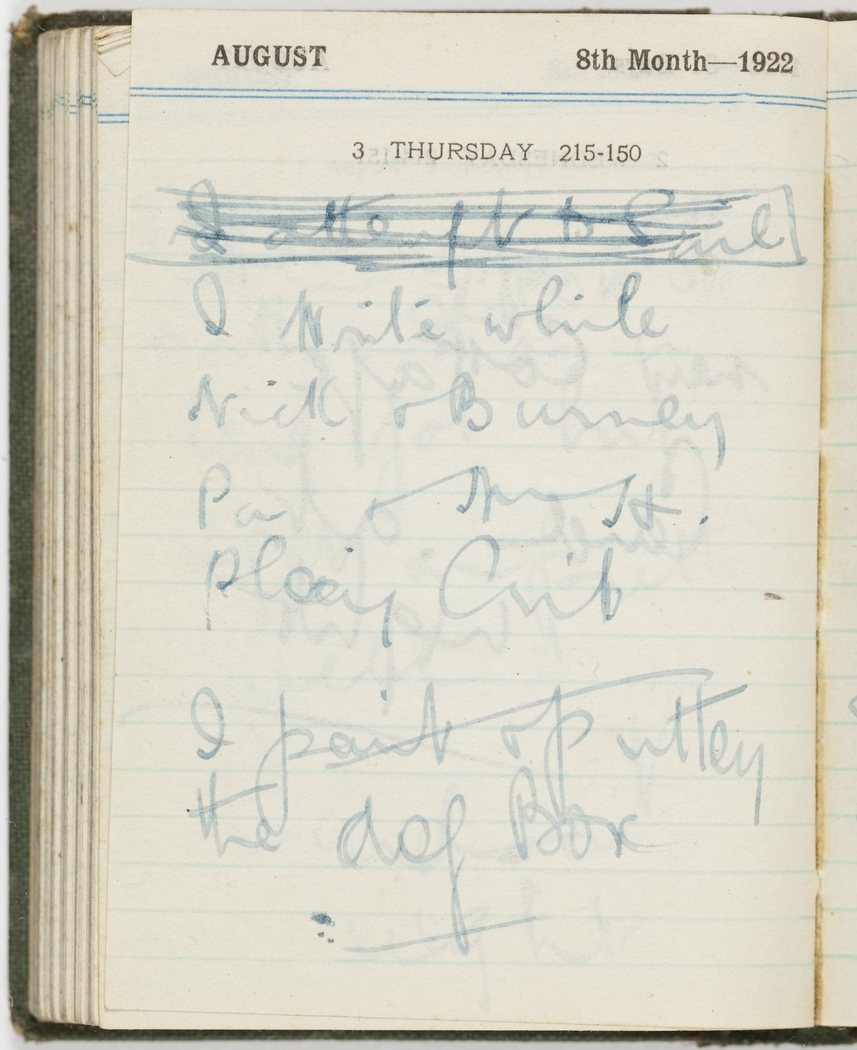 AUGUST 8th Month—1922
3 THURSDAY 215-150
I attempt to Sail
I write while
Nick & Burney
Pa & H.
Play Crib
I paint & putty
the dog Box